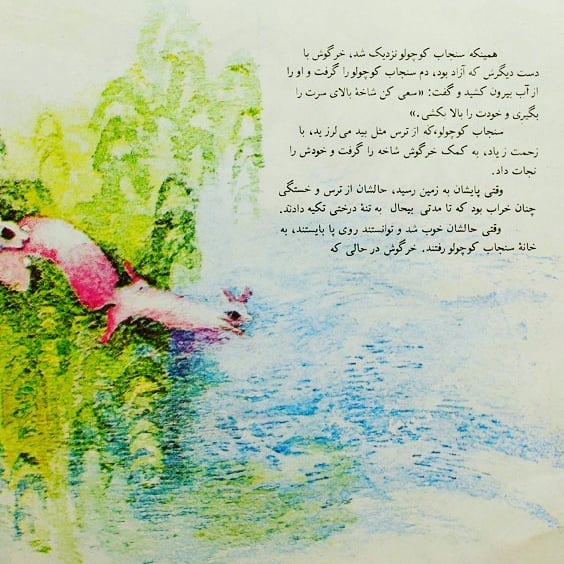 همینکه سنجاب کوچولو نزدیک شد، خرگوش با
دست دیگرش که آزاد بود، دم سنجاب کوچولو را گرفت و او را
از آب بیرون کشید و گفت: «سعی کن شاخهٔ بالای سرت را
بگیری و خودت را بالا بکشی.»
سنجاب کوچولوءکه از ترس مثل بید می لرزید، با
زحمت زیاد، به کمک خرگوش شاخه را گرفت و خودش را
نجات داد.
وقتی پایشان به زمین رسید، حالشان از ترس و خستگی
چنان خراب بود که تا مدتی بیحال به تنهٔ درختی تکیه دادند.
وقتی حالشان خوب شد و توانستند روی پا بایستند، به
خانهٔ سنجاب کوچولو رفتند. خرگوش در حالی که